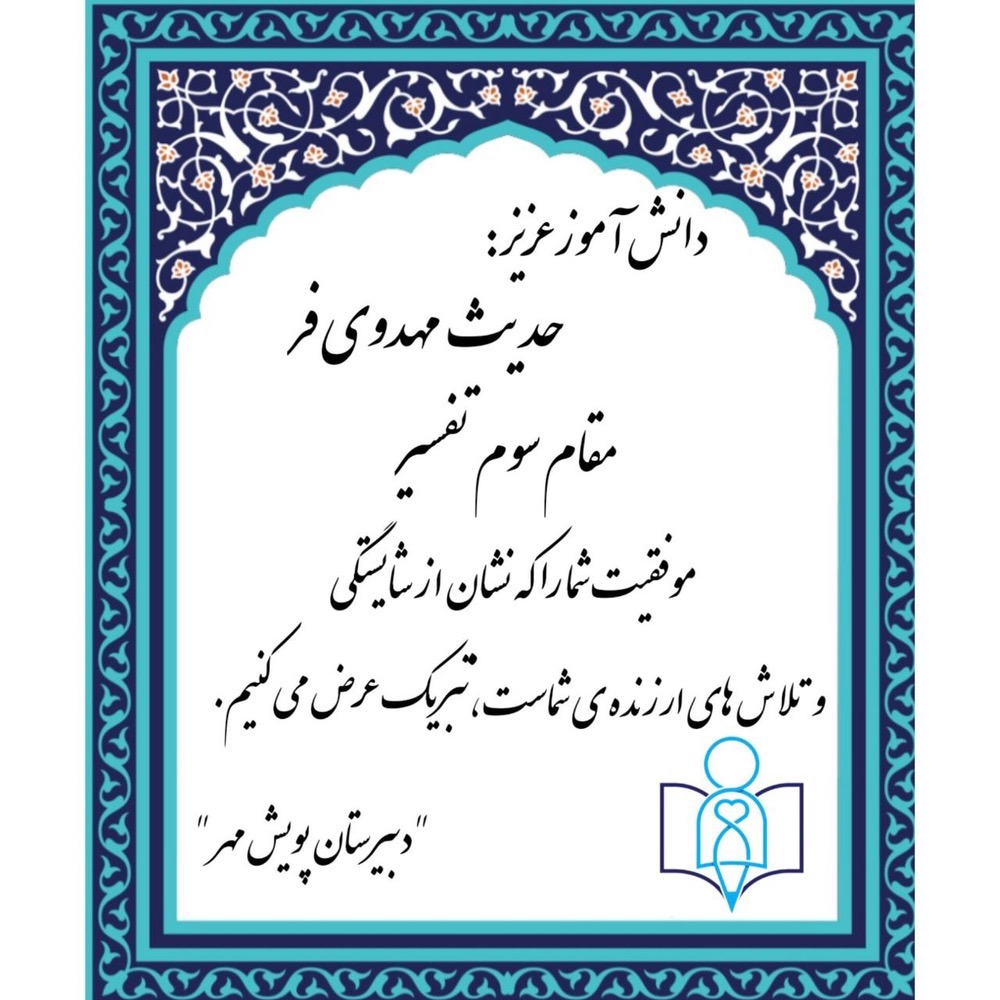 دانش آموز عزیز:
حدیث مهدوی فر
مقام سوم تفسیر
موفقیت شما را که نشان از شایستگی
و تلاش های ارزنده ی شماست، تبریک عرض می کنیم.
"دبیرستان پویش مهر"